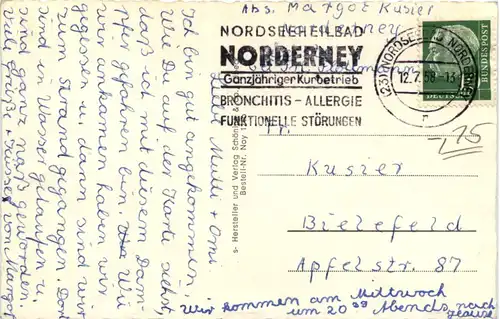 Abs. Margot Kusier
Norderney
NORDSEEHEILBAD
NORDERNEY
Ganzjähriger Kurbetrieb
BRONCHITIS – ALLERGIE
FUNKTIONELLE STÖRUNGEN
(23) NORDSEEBAD NORDERNEY
12.7.58-13
n
DEUTSCHE BUNDESPOST
-,75
Mutti + Omi
Ich bin gut angekommen
Wie Du auf der Karte siehst,
daß ich mit diesem Dam-
pfer gefahren bin. Wie
wir ankamen haben wir
gegessen u. dann sind wir
zum Strand gegangen. Dort
sind Wasser gelaufen u.
sind ganz naß geworden.
viele Grüße + Küsse von Margot
Hersteller und Verlag Schöni
Bestell-Nr. Noy 1
Kusier
Bielefeld
Apfelstr. 87
Wir kommen am Mittwoch
um 20 Abends nach
Hause